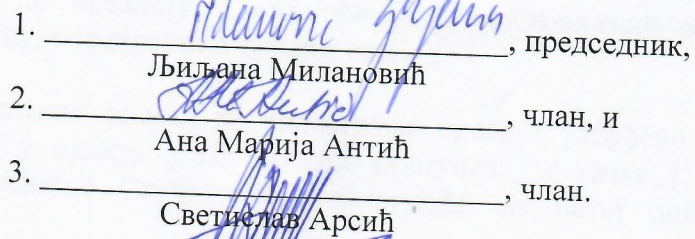 1. Милановић Љиљана, председник,
Љиљана Милановић
2. , члан, и
Ана Марија Антић
3. , члан.
Светислав Арсић